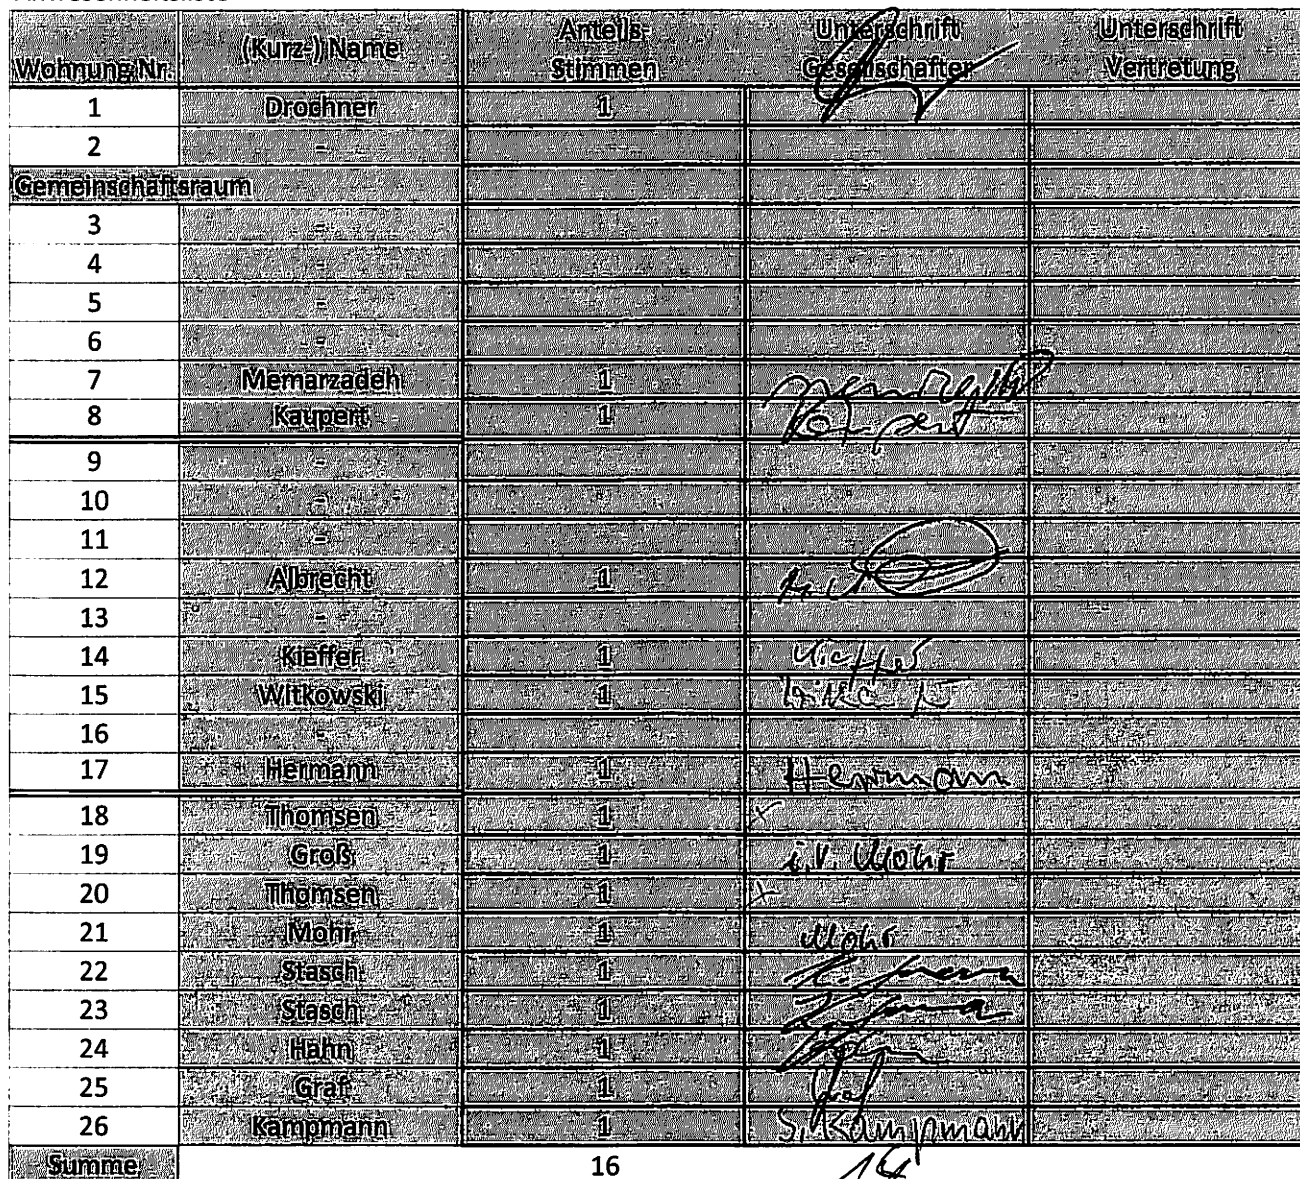 Wohnung Nr. (Kurz-) Name Anteils-Stimmen Unterschrift Gesellschafter Unterschrift Vertretung
1 Drochner 1
2 -
Gemeinschaftsraum
3 -
4 -
5 -
6 -
7 Memarzadeh 1
8 Kaupert 1 Kaupert
9 -
10 -
11 -
12 Albrecht 1
13 -
14 Kieffer 1 Kieffer
15 Witkowski 1 Witkowski
16 -
17 Hermann 1 Hermann
18 Thomsen 1 x
19 Groß 1 i.V. Mohr
20 Thomsen 1 x
21 Mohr 1 Mohr
22 Stasch 1
23 Stasch 1
24 Hahn 1
25 Graf 1 Graf
26 Kampmann 1 S. Kampmann
Summe 16 14